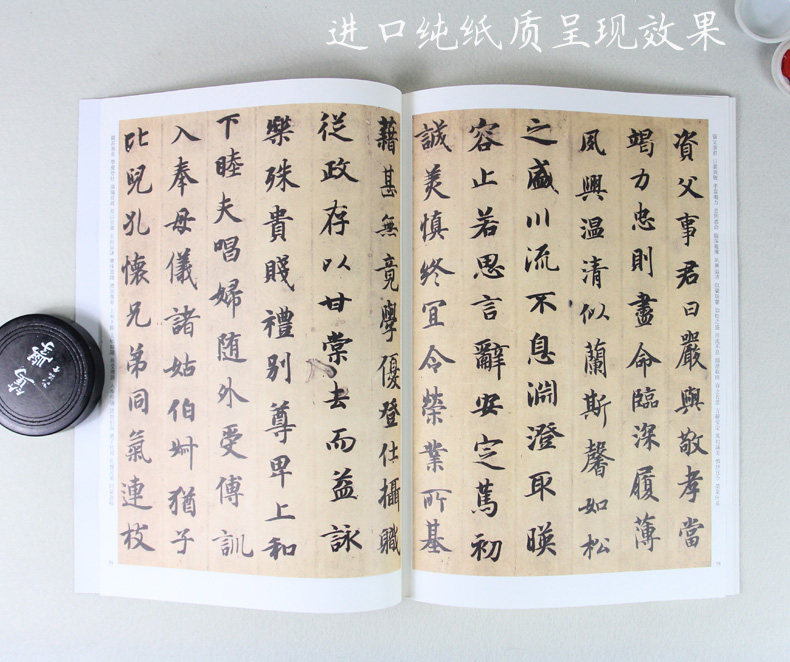 进口纯纸质呈现效果
資父事君曰嚴與敬孝當
竭力忠則盡命臨深履薄
夙興温清似蘭斯馨如松
之盛川流不息淵澄取暎
容止若思言辭安定篤初
誠美慎終宜令榮業所基
藉甚無竟學優登仕攝職
從政存以甘棠去而益詠
樂殊貴賤禮別尊卑上和
下睦夫唱婦随外受傅訓
入奉母儀諸姑伯叔猶子
比兒孔懷兄弟同氣連枝